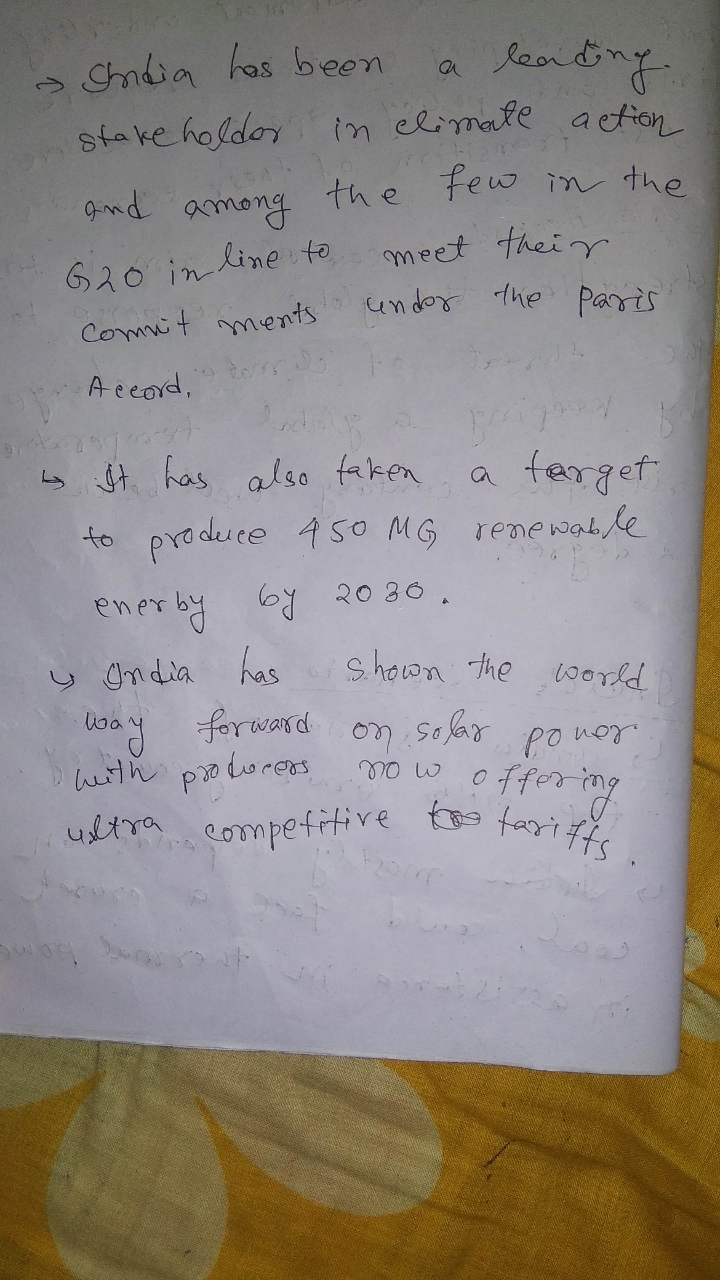 → India has been a leading
stakeholder in climate action
and among the few in the
G20 in line to meet their
commitments under the Paris
Accord.
↳ It has also taken a target
to produce 450 MG renewable
enerby by 2030.
↳ India has shown the world
way forward on solar power
with producers now offering
ultra competitive tariffs.